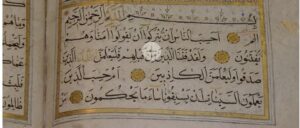 بسم الله الرحمن الرحيم
الم احسب الناس ان يتركوا ان يقولوا امنا وهم لا
يفتنون ولقد فتنا الذين من قبلهم فليعلمن الله الذين
صدقوا وليعلمن الكاذبين ام حسب الذين
يعملون السيئات ان يسبقونا ساء ما يحكمون